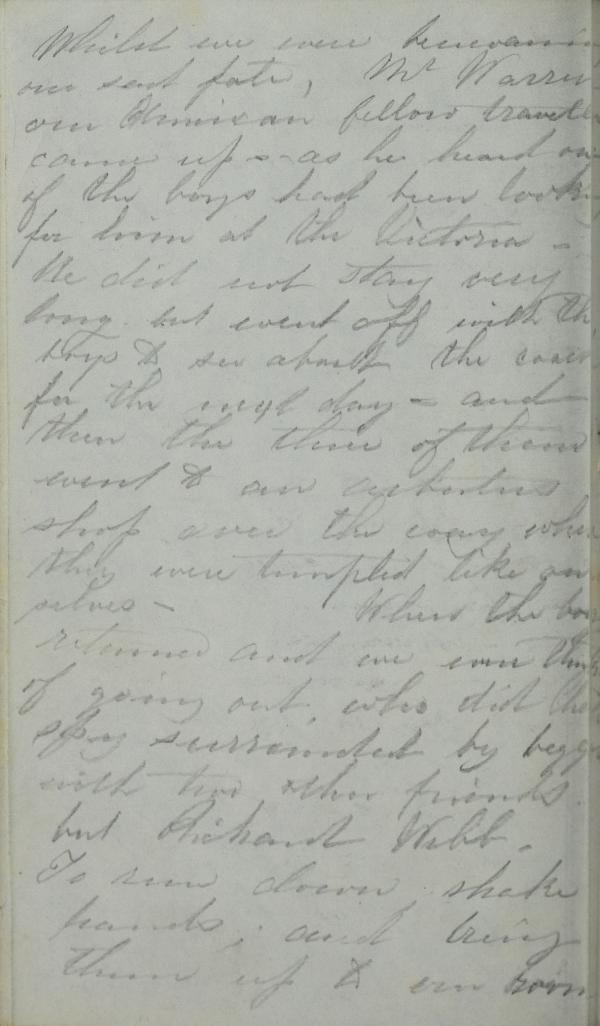 Whilst we were bemoanin
our sad fate, Mr Warren
our American fellow travele
came up - as he heard on
of the boys had been lookin
for him at the Victoria -
He did not stay very
long but went off with the
boys to see about the coac
for the next day - and
then the three of them
went to an arbutus
shop over the way wher
they were tempted like our
selves - When the boy
returned and we were think
of going out, who did the
spy surrounded by begg
with two other friends
but Richard Webb.
To run down shake
hands, and bring
them up to our room